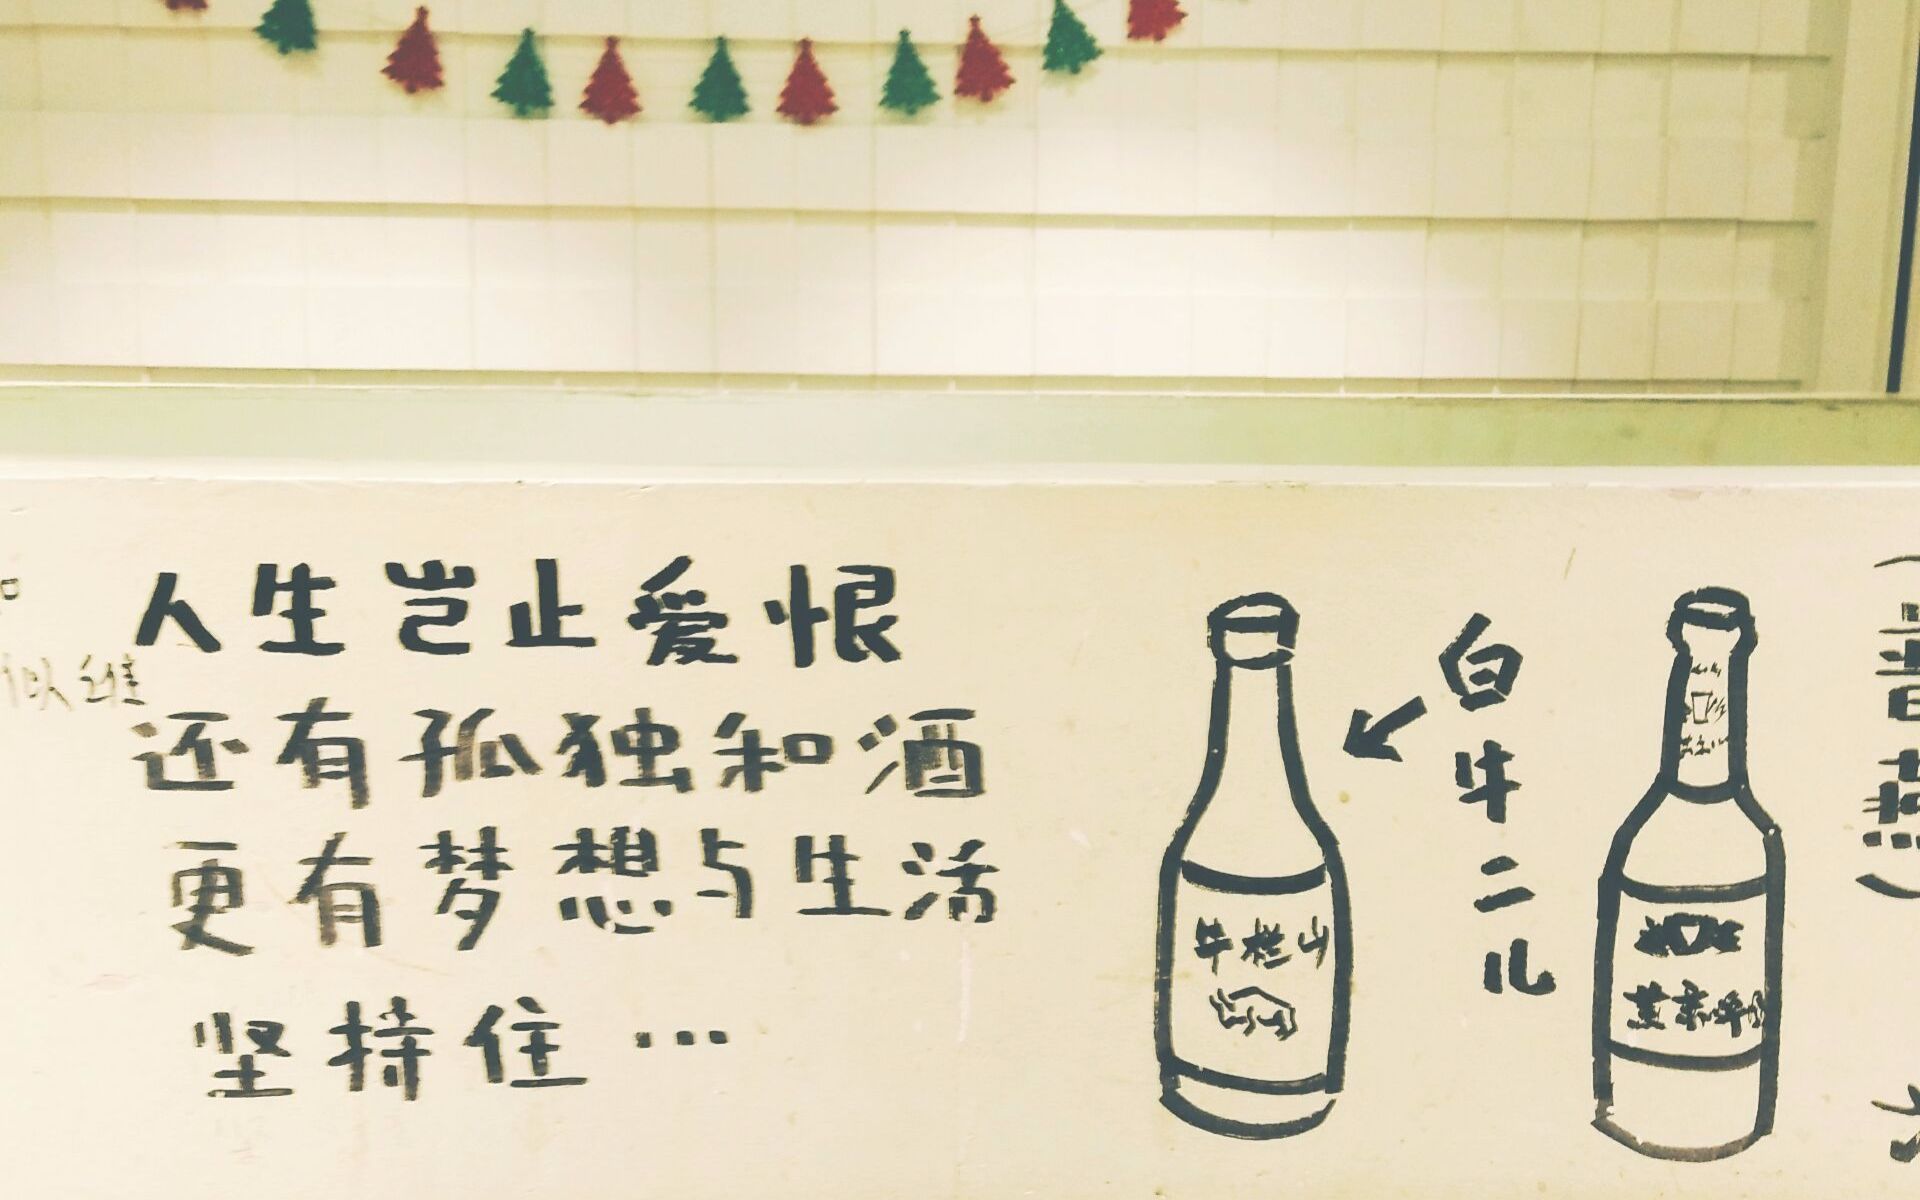 人生岂止爱恨
还有孤独和酒
更有梦想与生活
坚持住…
白牛二儿
牛栏山
燕京啤酒
(普燕)